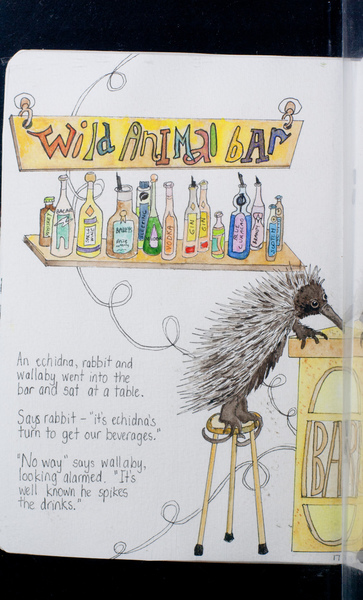 Wild Animal bar
VODKA
GIN
GIN
BLUE
CURACAO
An echidna, rabbit and
wallaby went into the
bar and sat at a table.
Says rabbit – "it's echidna's
turn to get our beverages."
"No way" says wallaby,
looking alarmed. "It's
well known he spikes
the drinks."
BAR
17